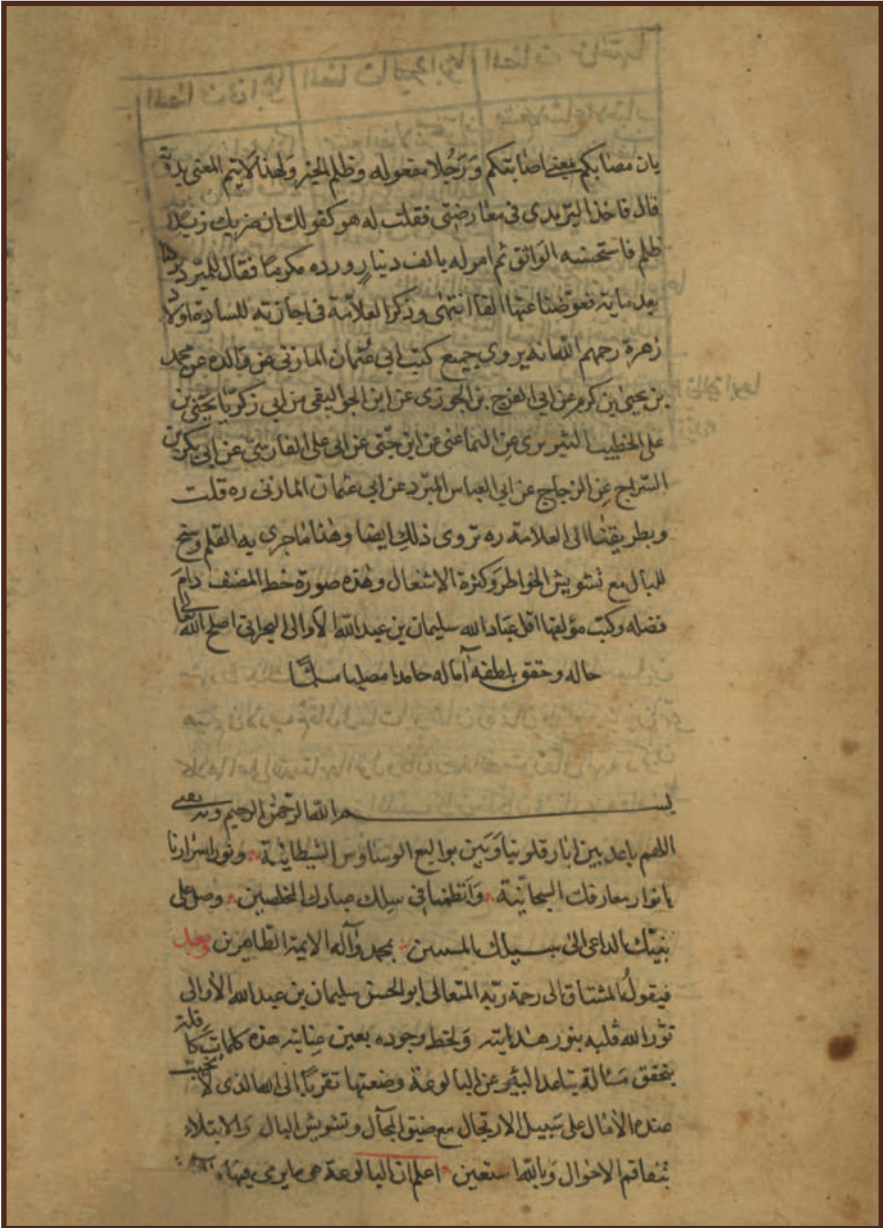 بان مصابكم بمعنى اصابتكم وَرَجُلا مفعوله وظلم الخبر وَلهذا لَا يتم المعنى بدونه
قال فاخذ اليزيدى فى معارضتى فقلت له هو كقولك ان ضربك زيدًا
ظلم فاستحسنه الوَاثق ثم امر له بالف دينار ورده مكرمًا فقال للمبّرد
يرد ماية فعوّضنا عنها الفا انتهٰى وذكر العلاّمة فى اجازته للسادة اولَاد
زهرة رحمهم اللّٰه انه يروى جميع كتب ابى عُثمان المازنى عن وَالده عن محمد
بن يحيىٰ بن كرم عن ابى الفرج بن الجوزى عن ابن الجواليقى عن ابى زكريّا يَحيى بن
على الخطيب التبريزى عن الثمانينى عن ابن جنّى عن ابى على الفارسىّ عن ابى بكر بن
السّراج عن الزجاج عن ابى العباس المبّرد عن ابى عثمان المازنى ره قلت
وبطريقنا الى العلامة ره نروى ذلك ايضا وهٰذا مٰا جرى به القلم وسنح
للبال مع تشويش الخواطر وَكثرة الاشغال وهٰذه صورة خط المصنف دَامَ
فضله وكتب مؤلفها اقل عبَاد اللّٰه سليمان بن عبد اللّٰه الاَوالى البحرانى اصلح اللّٰه تعالى
حاله وحقق بلطفه آماله حامدا مصليا مسلمًا
بسم اللّٰه الرّحمٰن الرحيم وبه نستعين
اللهم باعد بين ابٰار قلوبنا وَبَين بواليع الوسَاوس الشيطانية ونوّر اسرارنا
بانوار معارفك السبحانيّة وَانظمنا فى سلك عبادك المخلصين وصل على
نبيّك الداعى الىٰ سبيلك المبين محمد وَآله الايمة الطاهرين وبعد
فيقولُ المشتاق الى رحمة ربّه المتعالى ابو الحسن سليمان بن عبد اللّٰه الاَوالى
نوّر اللّٰه قلبه بنور هدايته وَلحظ وجوده بعين عنايته هذه كلمات كافلة
بتحقق مَسألة تباعد البئر عن البالوعة وضعتها تقربًا الى اللّٰه الذى لا تخيب
عنده الآمٰال على سَبيل الارتجال مع ضيق المجٰال وتشويش البال وَالابتلاء
بتفاقم الاحوٰال وَباللّٰه استعين اعلم ان البالوعة هى ما يرمى فيها